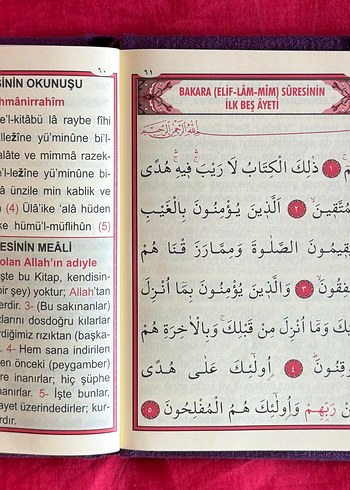 SİNİN OKUNUŞU
hmânirrahîm
e'l-kitâbü lâ raybe fîhi
lležîne yü'minûne bi'l-
alâte ve mimmâ razek-
'l-ležîne yü'minûne bi-
â ünzile min kablik ve
(4) Ülâ'ike 'alâ hüden
ke hümü'l-müflihûn (5)
ESİNİN MEÂLİ
olan Allah'ın adıyle
şte bu Kitap, kendisin-
bir şey) yoktur; Allah'tan
erdir. 3- (Bu sakınanlar)
zlarını dosdoğru kılarlar
rdiğimiz rızıktan (başka-
. 4- Hem sana indirilen
en önceki (peygamber)
e inanırlar; hiç şüphe
nanırlar. 5- İşte bunlar,
ayet üzerindedirler; kur-
rdir.
٦٠
٦١
BAKARA (ELİF-LÂM-MÎM) SÛRESİNİN
İLK BEŞ ÂYETİ
بِسْمِ اللّٰهِ الرَّحْمٰنِ الرَّحِيمِ
مٓ ١ ذٰلِكَ الْكِتَابُ لَا رَيْبَۚ فِيهِۚ هُدًى
مُتَّقِينَۙ ٢ اَلَّذِينَ يُؤْمِنُونَ بِالْغَيْبِ
يُقِيمُونَ الصَّلٰوةَ وَمِمَّا رَزَقْنَا هُمْ
فِقُونَۙ ٣ وَالَّذِينَ يُؤْمِنُونَ بِمَا اُنْزِلَ
يْكَ وَمَا اُنْزِلَ مِنْ قَبْلِكَۚ وَبِالْاٰخِرَةِ هُمْ
وقِنُونَۜ ٤ اُولٰئِكَ عَلٰى هُدًى
نْ رَبِّهِمْ وَاُولٰئِكَ هُمُ الْمُفْلِحُونَ ٥